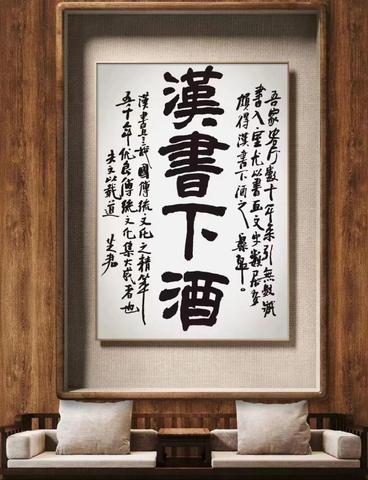 吾家數十年來引無數藏
書入室尤以書文史類居多
頗得漢書下酒之樂趣。
漢書下酒
漢書我國傳統文化之精華
五千年優良傳統文化集大成者也
夫文以載道